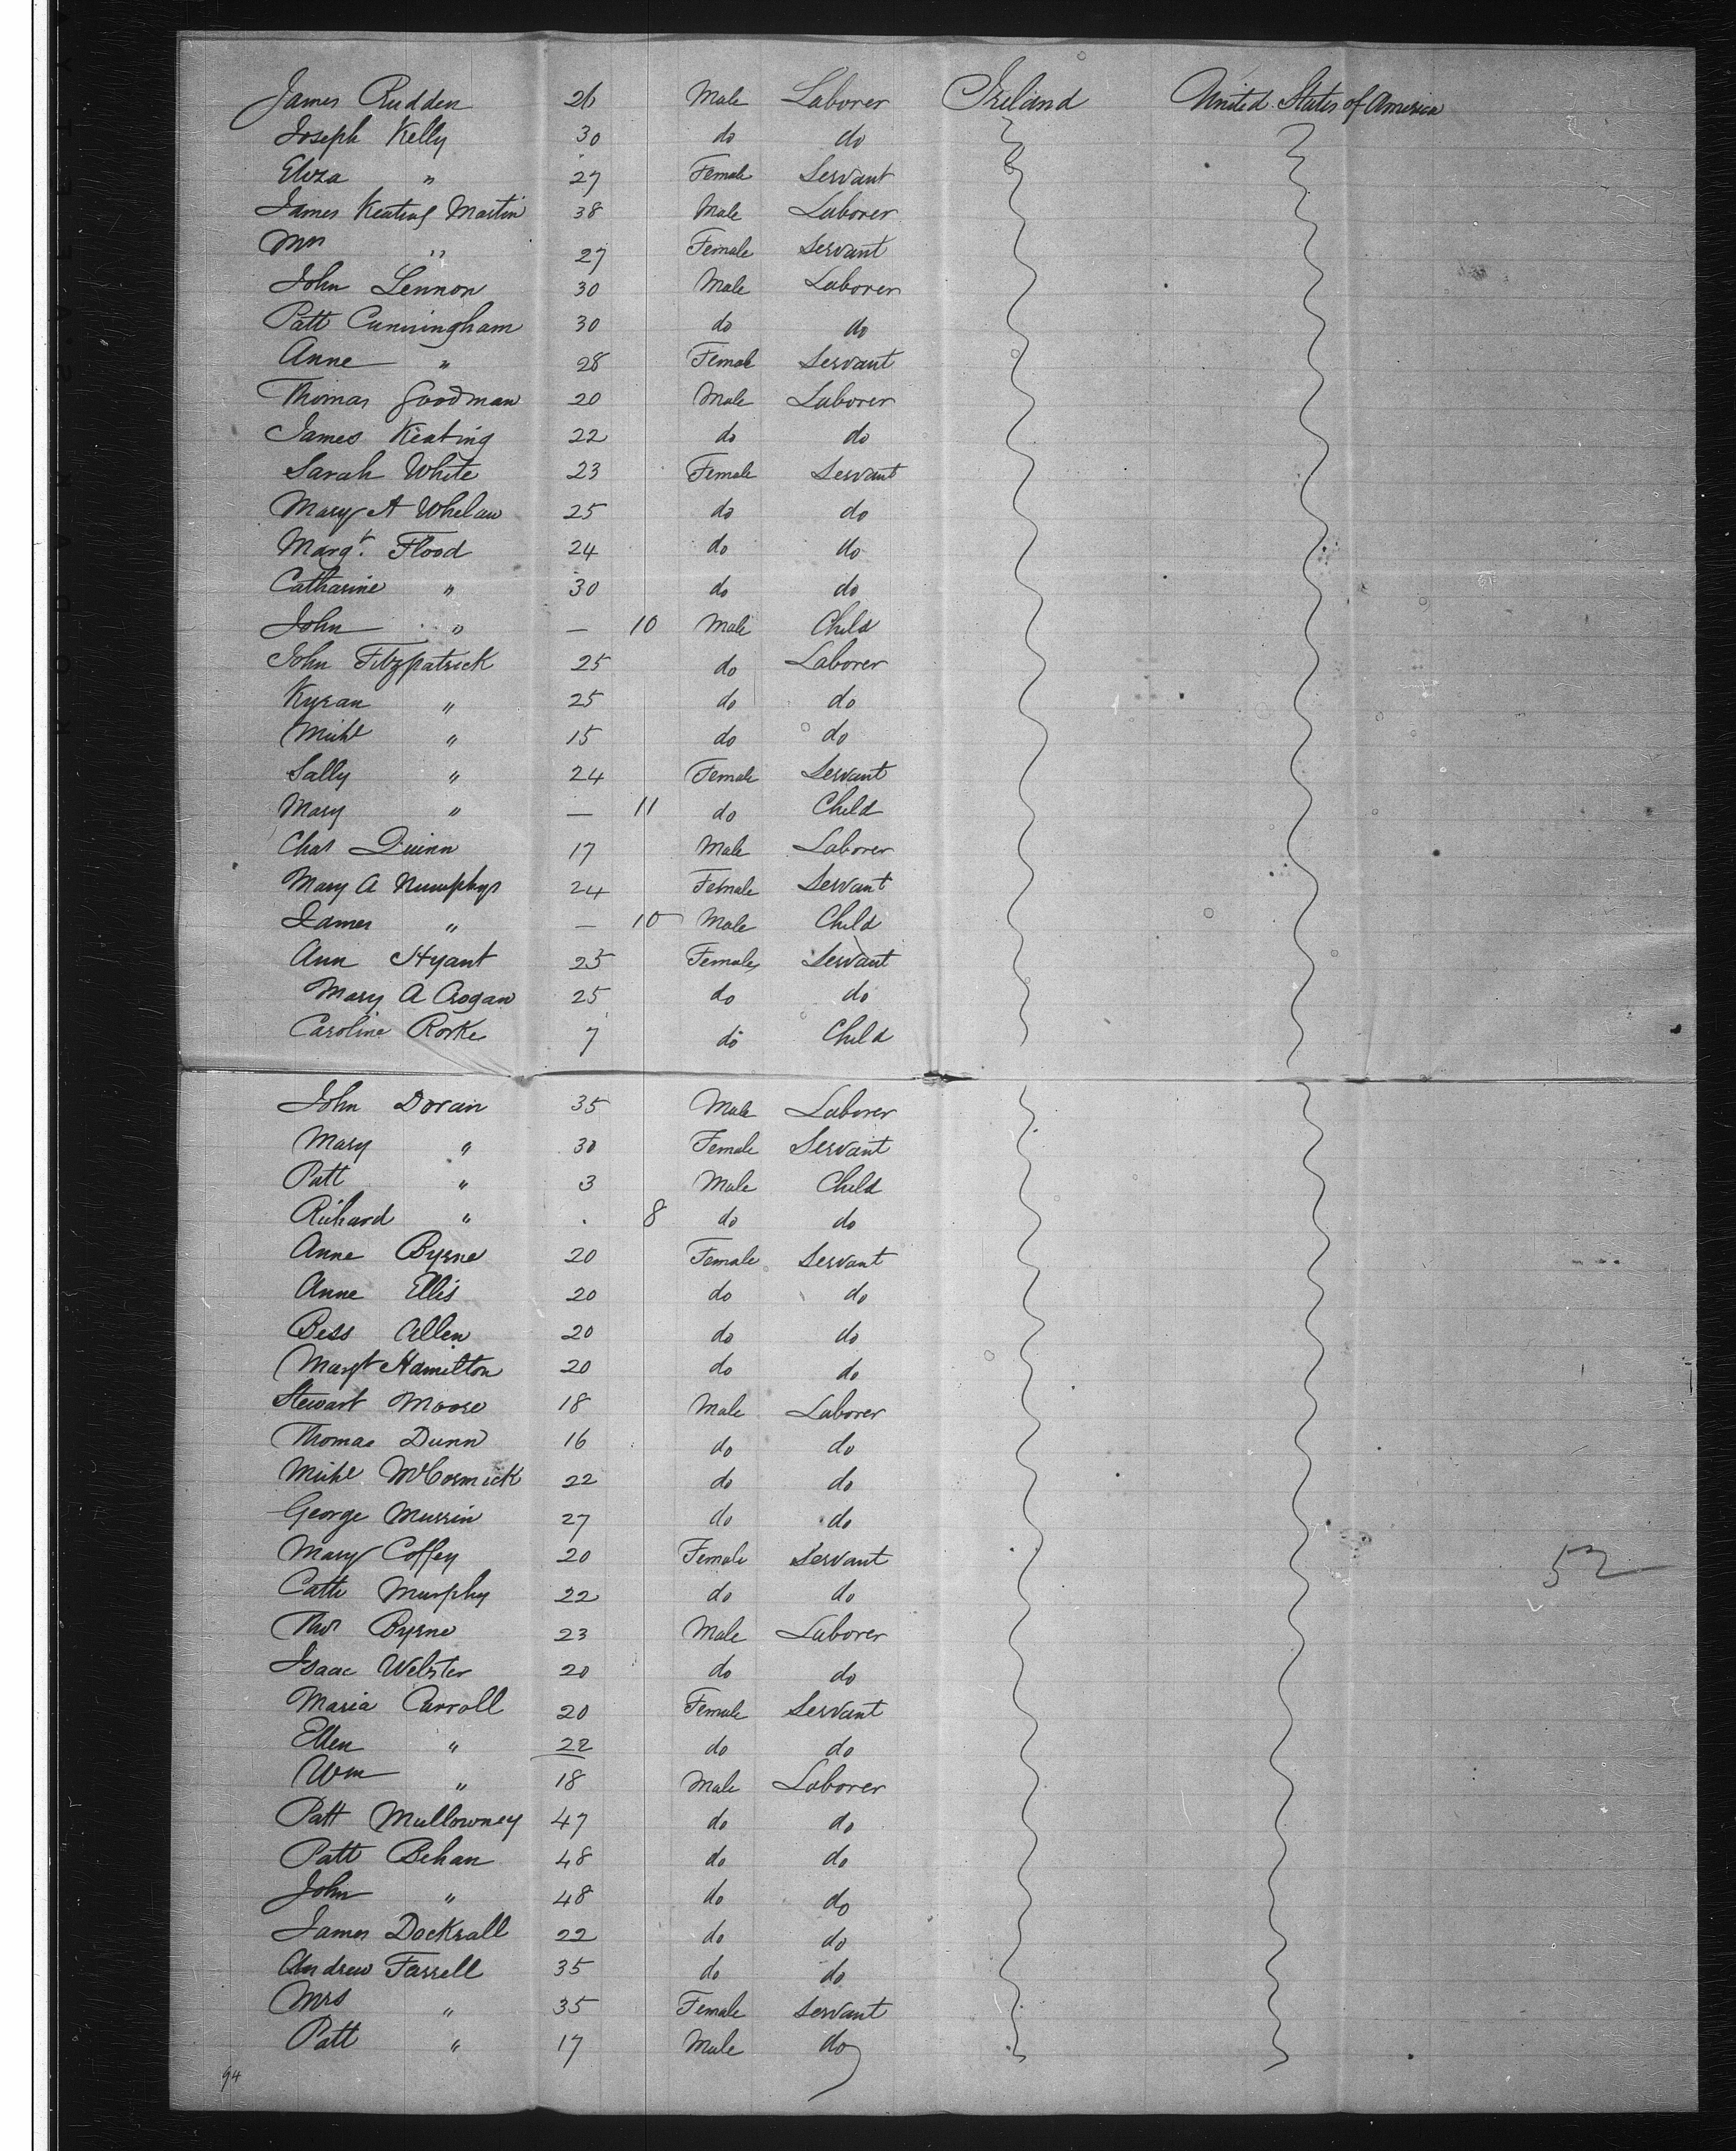 James Rudden 26 Male Laborer Ireland United States of America
Joseph Kelly 30 do do
Eliza " 27 Female Servant
James Keating Martin 38 Male Laborer
Mrs " 27 Female Servant
John Lennon 30 Male Laborer
Patt Cunningham 30 do do
Anne " 28 Female Servant
Thomas Goodman 20 Male Laborer
James Keating 22 do do
Sarah White 23 Female Servant
Mary A Whelan 25 do do
Margt. Flood 24 do do
Catharine " 30 do do
John " — 10 Male Child
John Fitzpatrick 25 do Laborer
Kyran " 25 do do
Michl " 15 do do
Sally " 24 Female Servant
Mary " — 11 do Child
Chas Quinn 17 Male Laborer
Mary A 24 Female Servant
James " — 10 Male Child
Ann Hyant 25 Female Servant
Mary A Crogan 25 do do
Caroline Rorke 7 do Child
John Doran 35 Male Laborer
Mary " 30 Female Servant
Patt " 3 Male Child
Richard " . 8 do do
Anne Byrne 20 Female Servant
Anne Ellis 20 do do
Bess Allen 20 do do
Margt Hamilton 20 do do
Stewart Moore 18 Male Laborer
Thomas Dunn 16 do do
Michl McCormick 22 do do
George Murrin 27 do do
Mary Coffey 20 Female Servant 52
Cath Murphy 22 do do
Thos Byrne 23 Male Laborer
Isaac Webster 20 do do
Maria Carroll 20 Female Servant
Ellen " 22 do do
Wm " 18 Male Laborer
Patt Mullowney 47 do do
Patt Behan 48 do do
John " 48 do do
James Dockrall 22 do do
Andrew Farrell 35 do do
Mrs " 35 Female Servant
Patt " 17 Male do
94